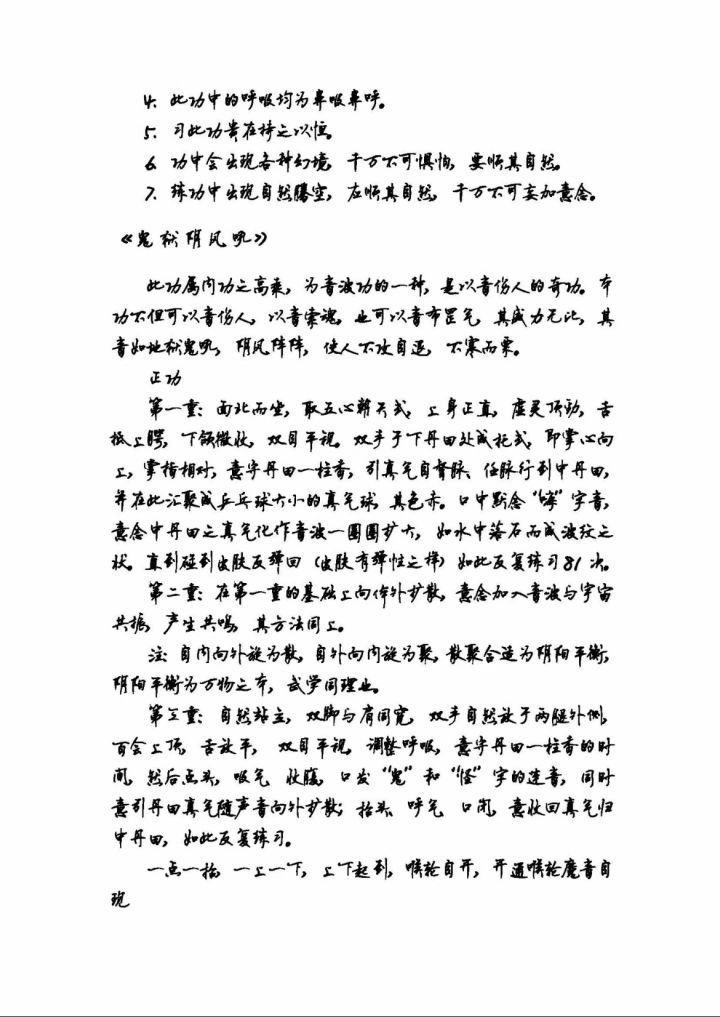 4、此功中的呼吸均为鼻吸鼻呼。
5、习此功贵在持之以恒。
6、功中会出现各种幻境，千万不可惧怕，要顺其自然。
7、练功中出现自然腾空，应顺其自然，千万不可妄加意念。
《鬼狱阴风吼》
此功属内功之高乘，为音波功的一种，是以音伤人的奇功。本
功不但可以音伤人，以音索魂，也可以音布罡气，其威力无比，其
音如地狱鬼吼，阴风阵阵，使人不攻自退，不寒而栗。
正功
第一重：面北而坐，取五心朝天式，上身正直，虚灵顶劲，舌
抵上腭，下颌微收，双目平视。双手于下丹田处成托式，即掌心向
上，掌指相对，意守丹田一柱香，引真气自督脉、任脉行到中丹田，
并在此汇聚成乒乓球大小的真气球，其色赤。口中默念“哞”字音，
意念中丹田之真气化作音波一圈圈扩大，如水中落石而成波纹之
状。直到碰到皮肤反弹回（皮肤有弹性之择）如此反复练习81次。
第二重：在第一重的基础上向体外扩散，意念加入音波与宇宙
共振，产生共鸣，其方法同上。
注：自内向外旋为散，自外向内旋为聚，散聚合适为阴阳平衡，
阴阳平衡为万物之本，武学同理也。
第三重：自然站立，双脚与肩同宽，双手自然放于两腿外侧，
百会上顶，舌放平，双目平视，调整呼吸，意守丹田一柱香的时
间，然后点头，吸气，收腹，口发“鬼”和“怪”字的连音，同时
意引丹田真气随声音向外扩散；抬头，呼气，口闭，意收回真气归
中丹田，如此反复练习。
一点一抬，一上一下，上下起到，喉轮自开，开通喉轮魔音自
现